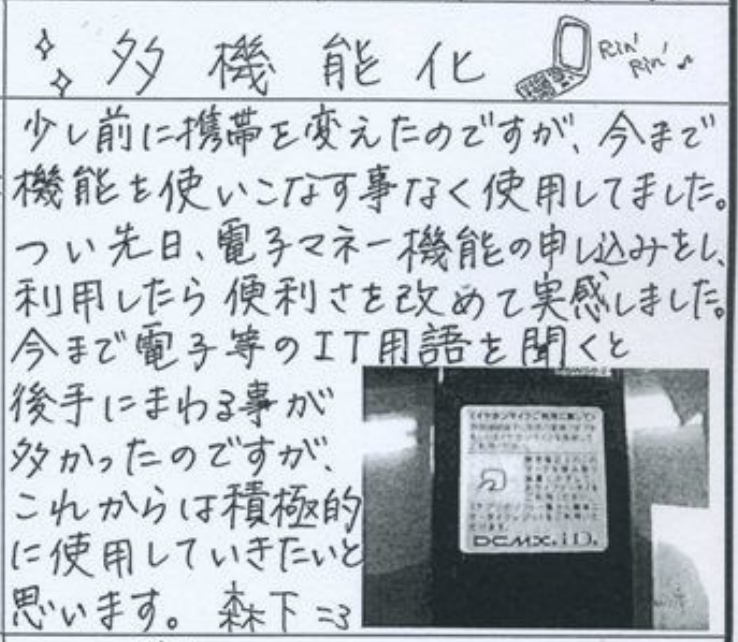 多機能化 Rin' Rin' ♪
少し前に携帯を変えたのですが、今まで
機能を使いこなす事なく使用してました。
つい先日、電子マネー機能の申し込みをし、
利用したら便利さを改めて実感しました。
今まで電子等のIT用語を聞くと
後手にまわる事が
多かったのですが、
これからは積極的
に使用していきたいと
思います。 森下
DCMX. iD.